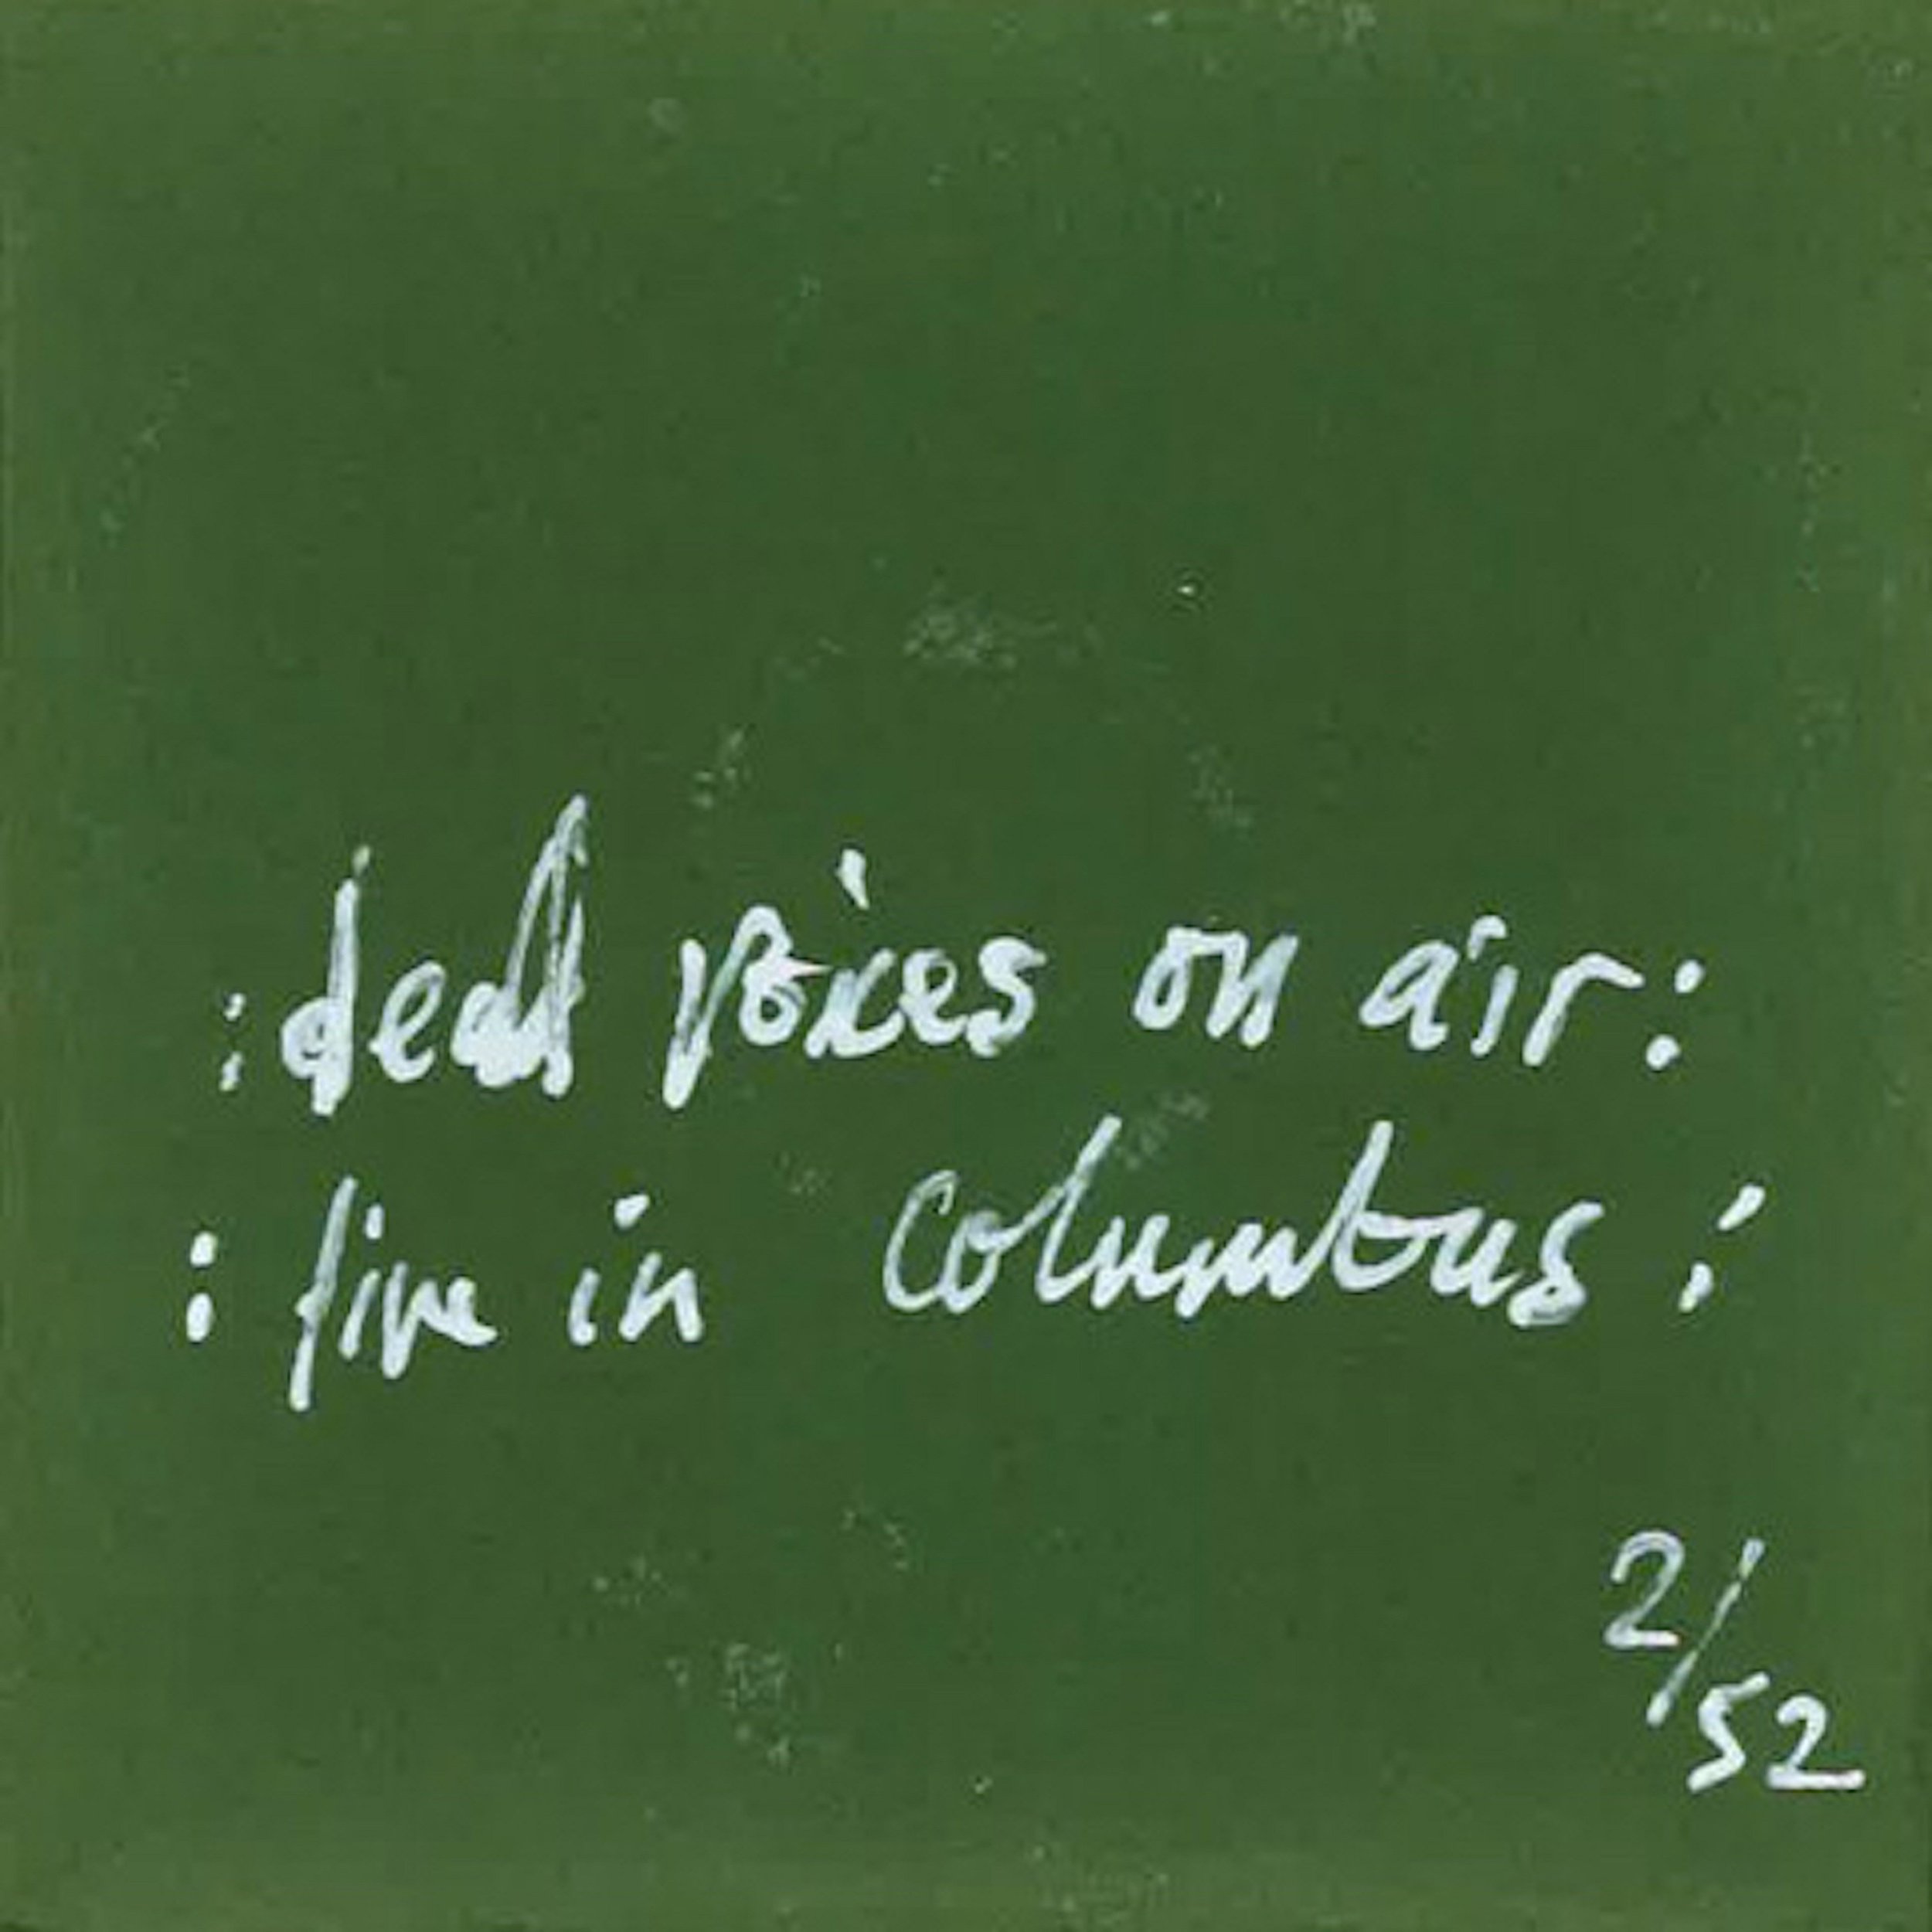 :dead voices on air:
: live in Columbus :
2/52